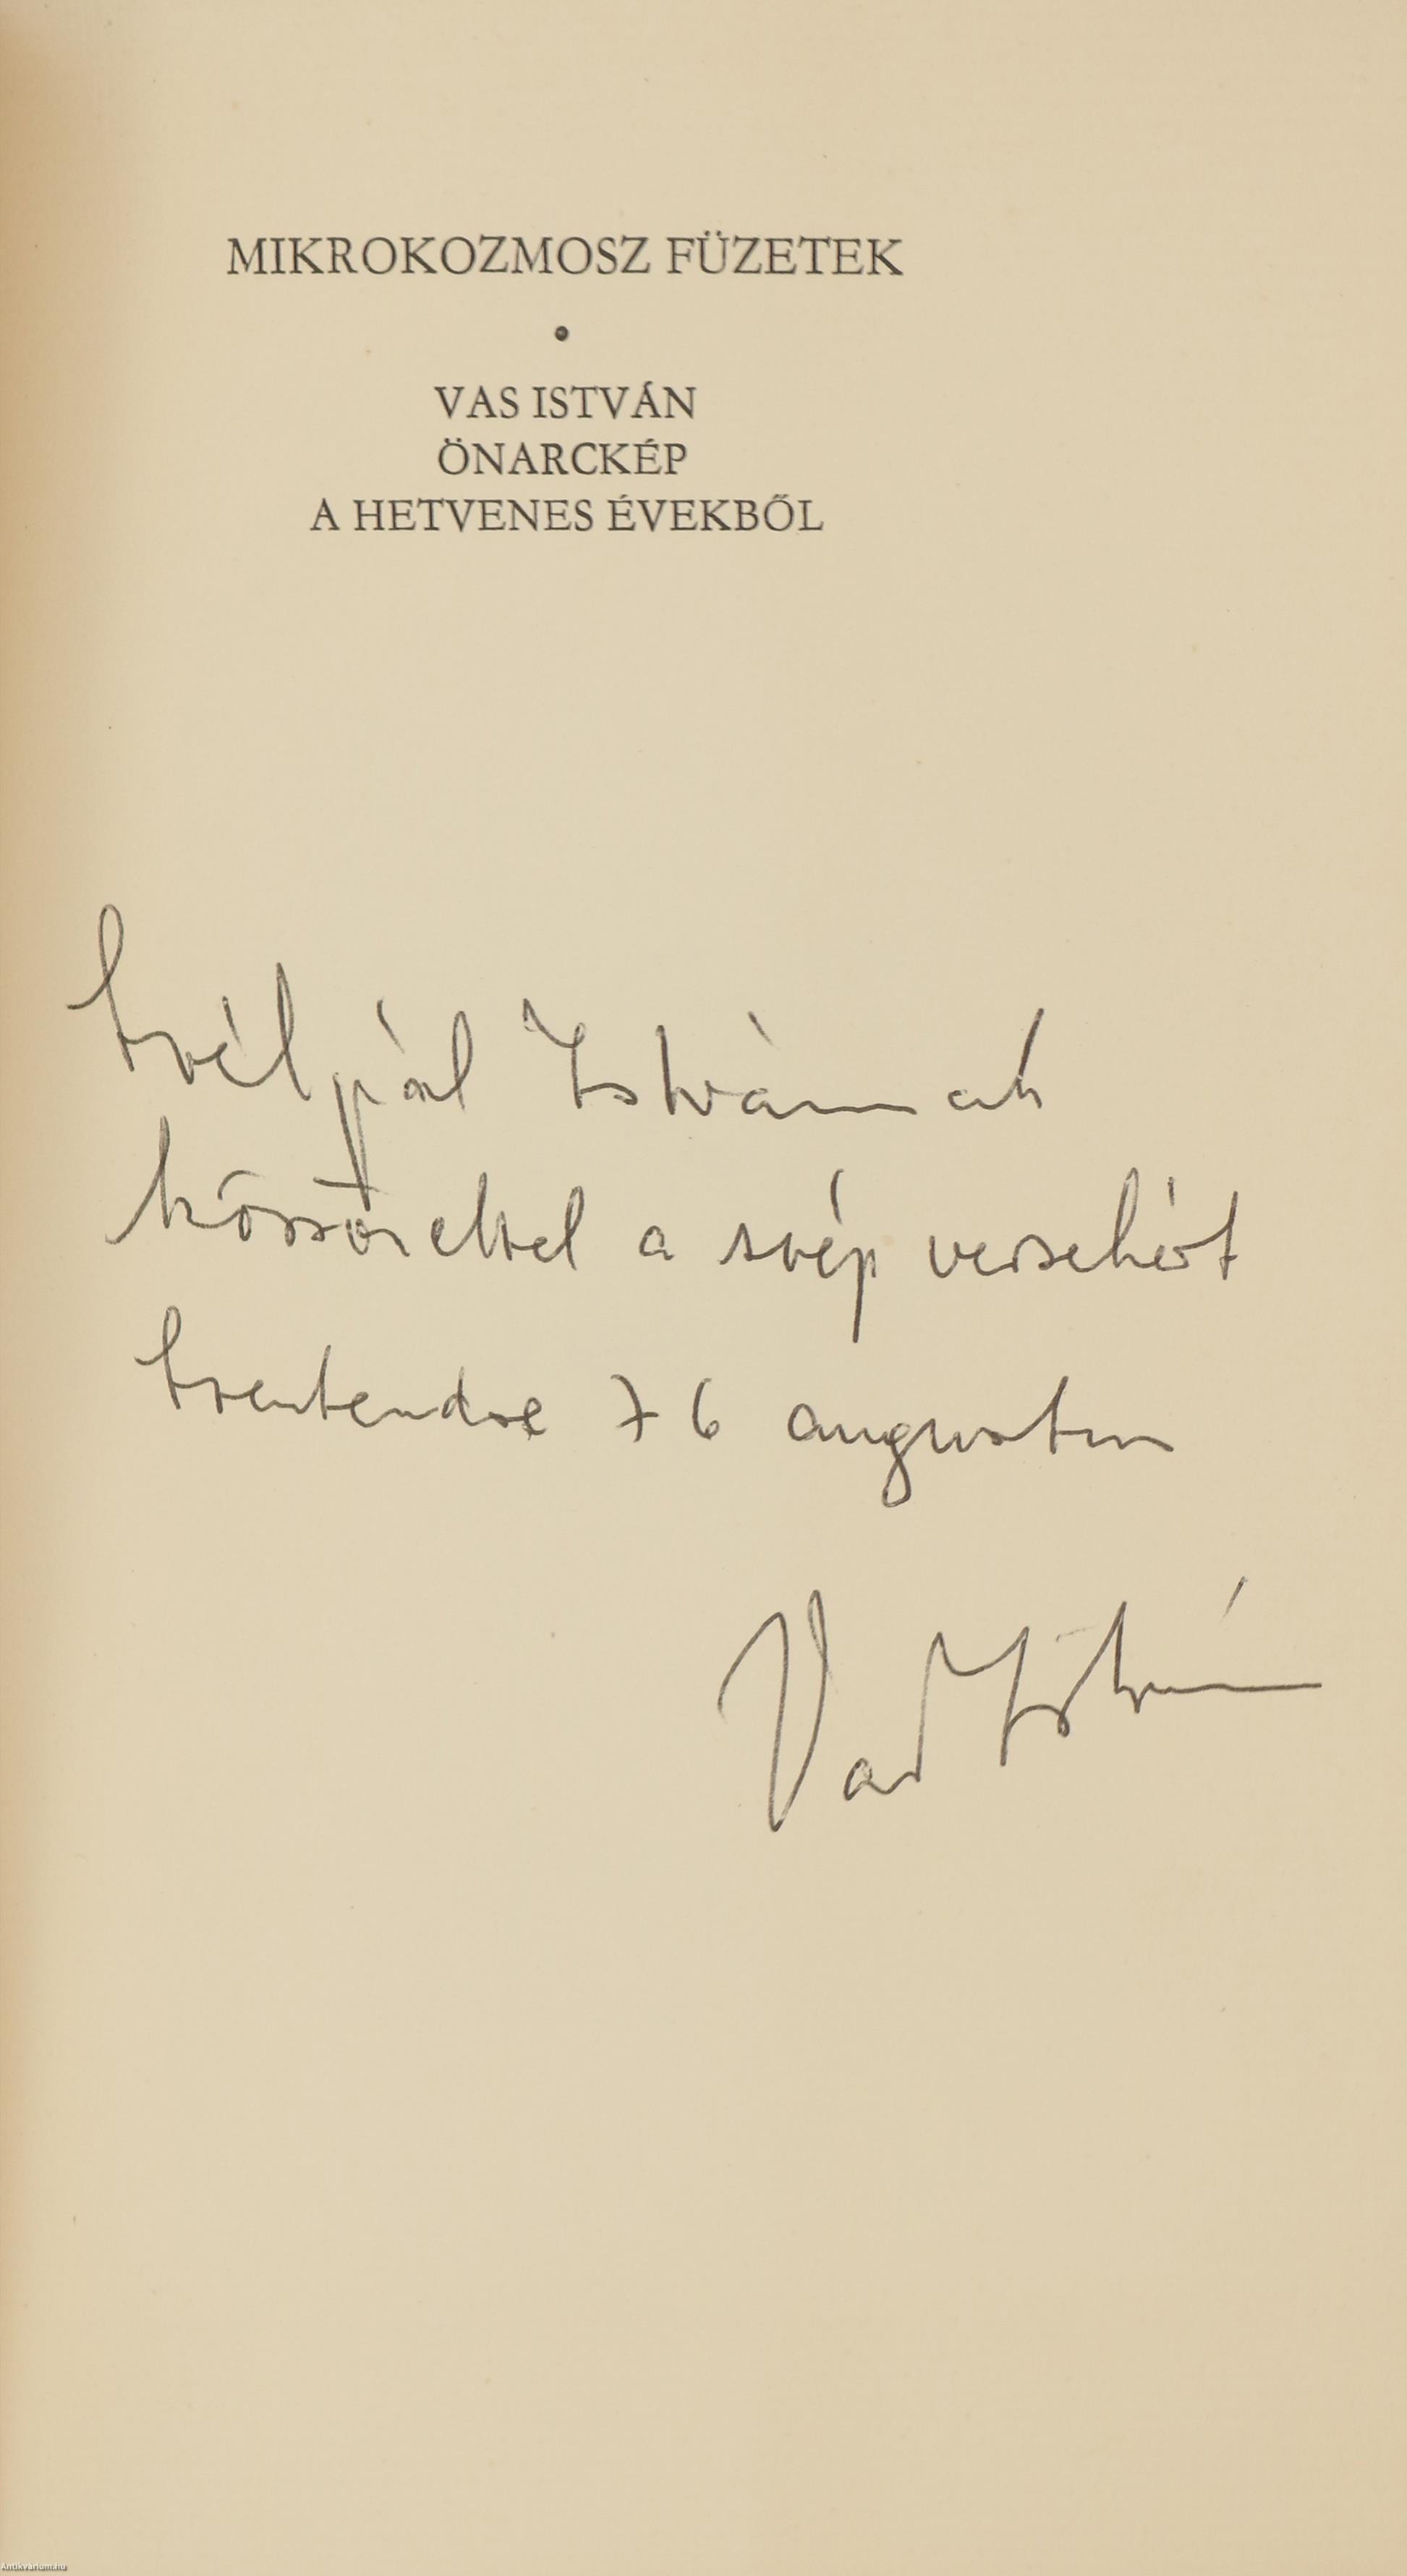 MIKROKOZMOSZ FÜZETEK
•
VAS ISTVÁN
ÖNARCKÉP
A HETVENES ÉVEKBŐL
Szélpál Istvánnak
köszönettel a szép versekért
Szentendre 76 augusztus
Vas István
Antikvarium.hu